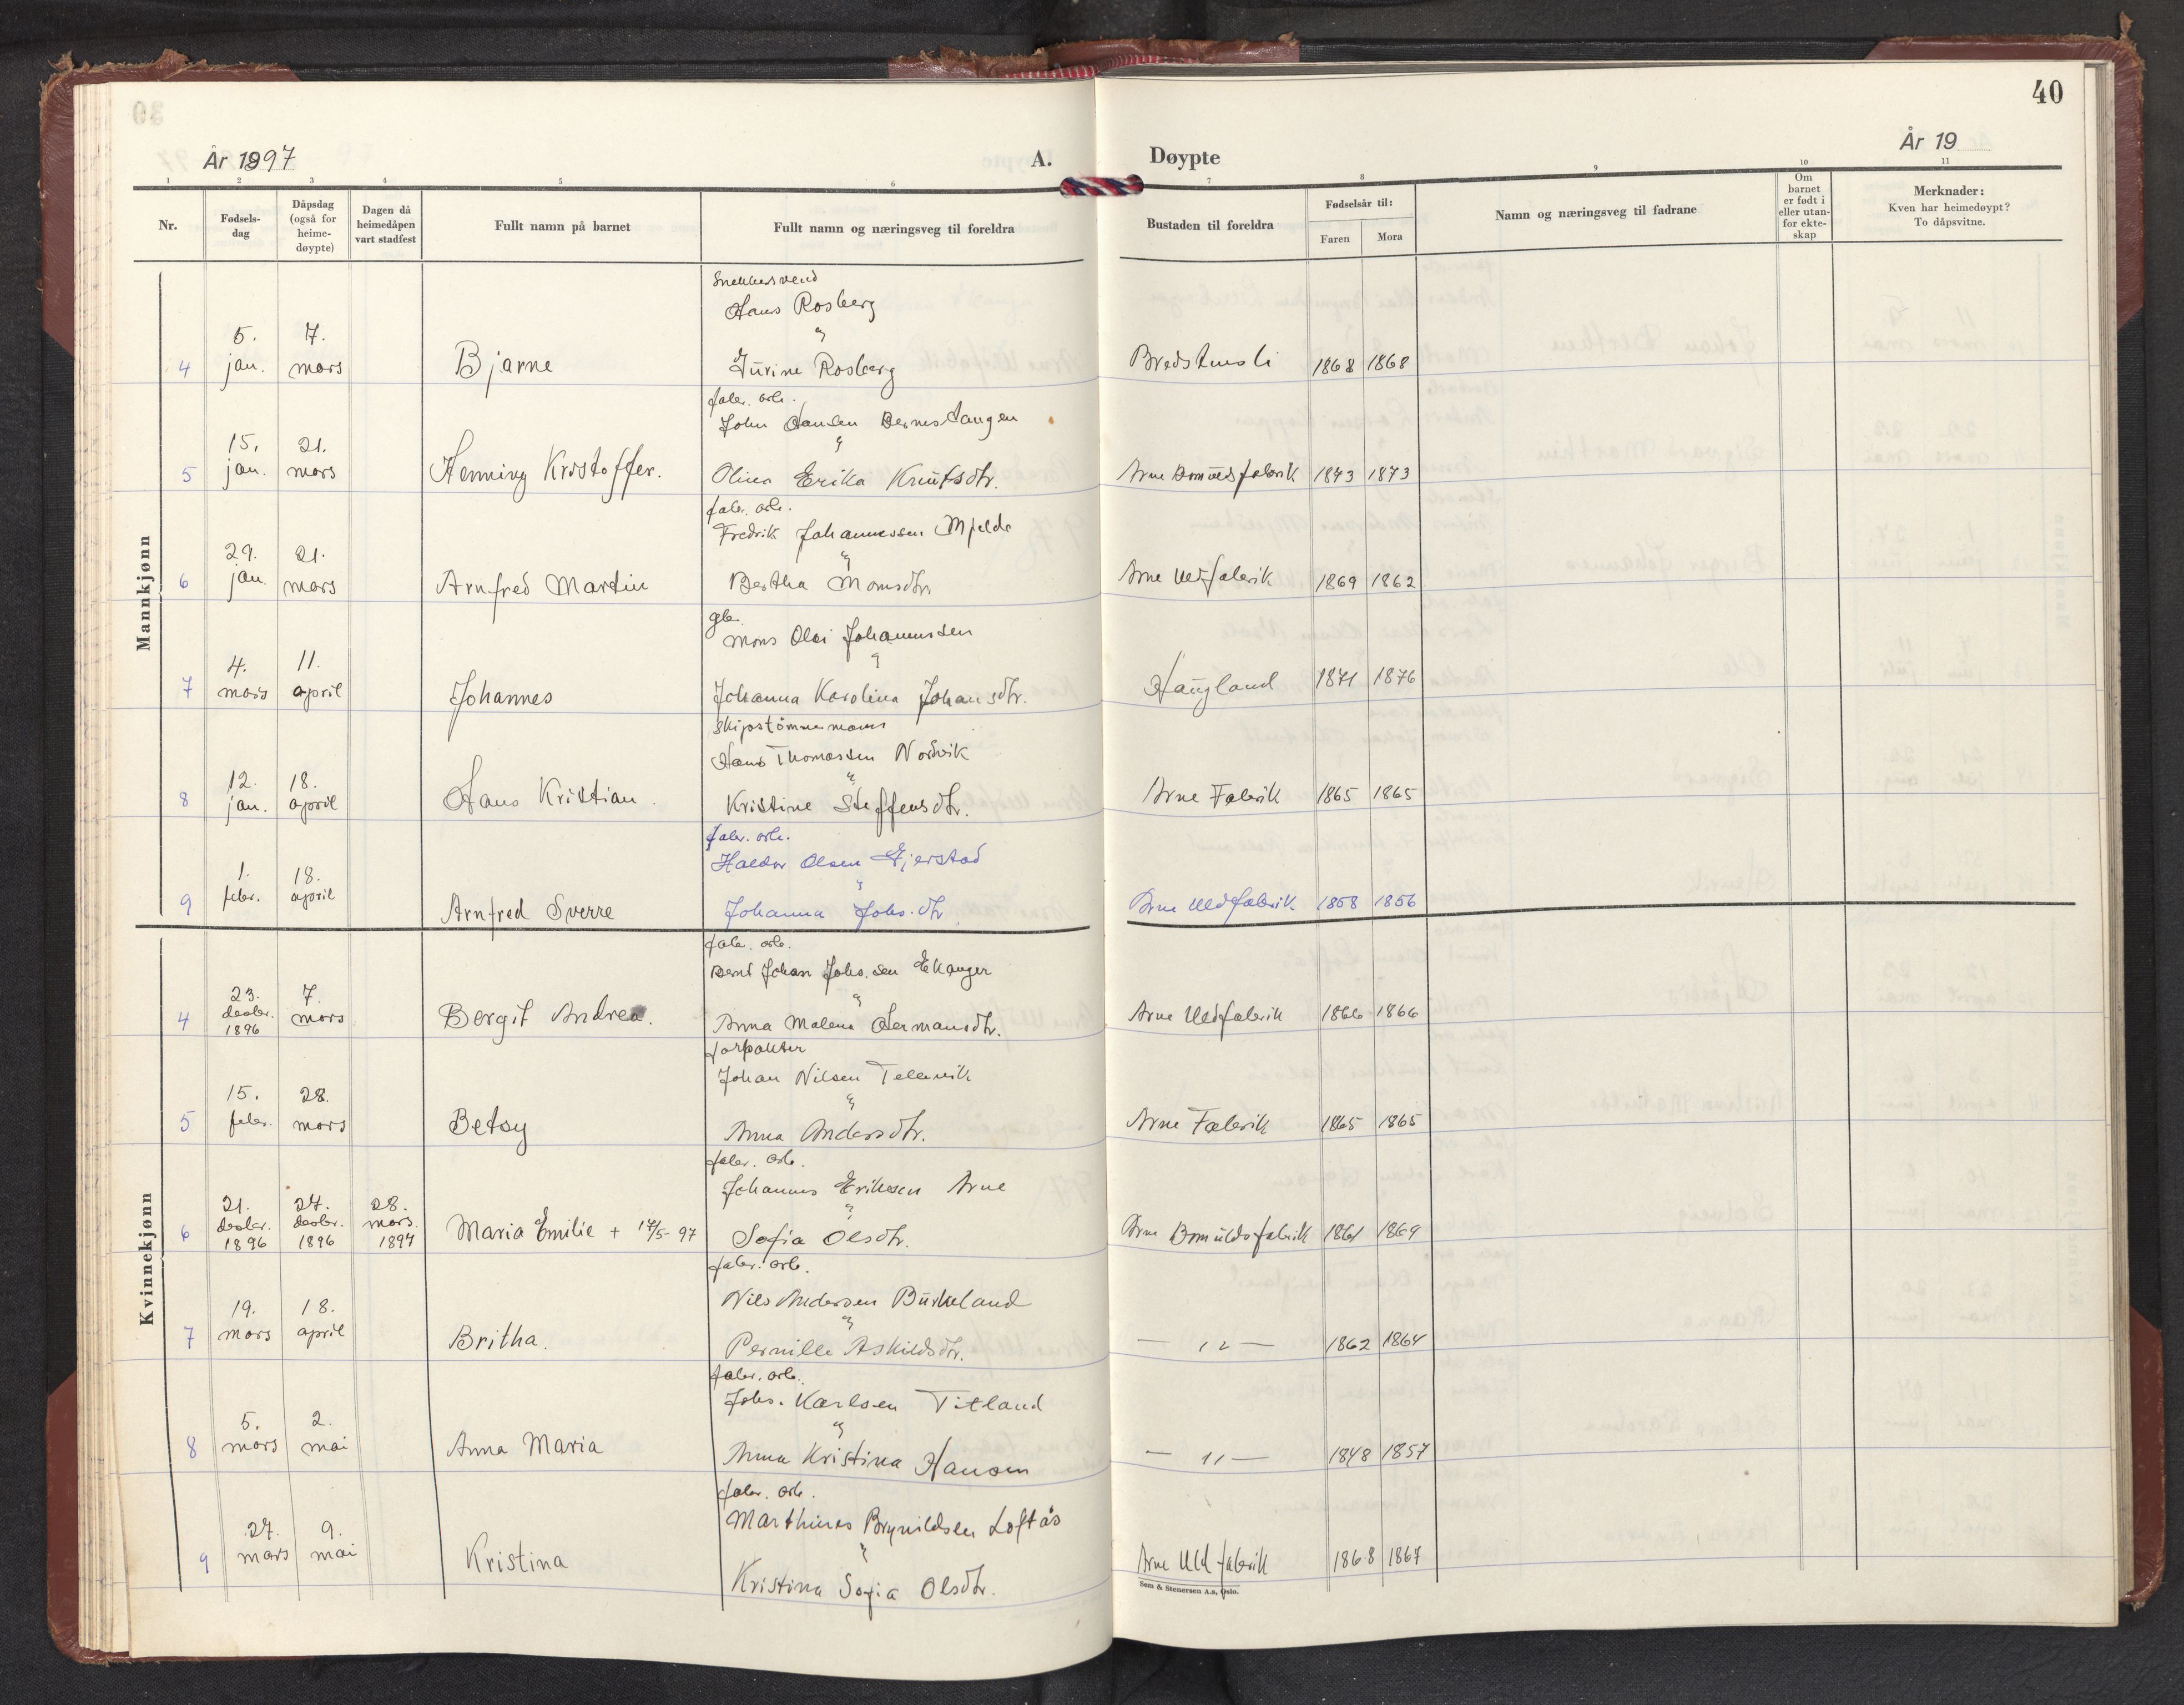 40
År 1897
A.
Døypte
År 19
1 2 3 4 5 6 7 8 9 10 11
Nr.
Fødsels-
dag
Dåpsdag
(også for
heime-
døypte)
Dagen då
heimedåpen
vart stadfest
Fullt namn på barnet
Fullt namn og næringsveg til foreldra
Bustaden til foreldra
Fødselsår til:
Faren Mora
Namn og næringsveg til fadrane
Om
barnet
er født i
eller utan-
for ekte-
skap
Merknader:
Kven har heimedøypt?
To dåpsvitne.
Mannkjønn
Snekkersvend
Hans Rosberg
5. 7. "
4 jan. mars Bjarne Jurine Rosberg 1868 1868
fabr. arb.
John Hansen Bernstangen
15. 21. "
5 jan. mars Henning Kristoffer. Olina Erika Knutsdtr. Arne Bomuldsfabrik 1873 1873
fabr. arb.
Fredrik Johannessen Mjelde
29. 21. "
6 jan. mars Arnfred Martin Bertha Monsdtr. Arne Uldfabrik 1869 1862
gbr.
Mons Olai Johannessen
4. 11. "
7 mars april Johannes Johanna Karolina Johansdtr. Haugland 1871 1876
Skipstömmermann
Hans Thomassen Nordvik
12. 18. "
8 jan. april Hans Kristian. Kristine Steffensdtr. Arne Fabrik 1865 1865
fabr. arb.
Haldor Olsen Gjerstad
1. 18. "
9 febr. april Arnfred Sverre Johanna Johs.dtr Arne Uldfabrik 1858 1856
Kvinnekjønn
fabr. arb.
Bernt Johan Johs.sen Ekanger
23. 7. "
4 desbr. mars Bergit Andrea. Anna Malena Hermansdtr. Arne Uldfabrik 1866 1866
1896
forpakter
Johan Nilsen Tellevik
15. 28. "
5 febr. mars Betsy Anna Andersdtr. Arne Fabrik 1865 1865
fabr. arb.
Johannes Eriksen Arne
21. 27. 28. "
6 desbr. desbr. mars. Maria Emilie + 17/5-97 Sofia Olsdtr. Arne Bomuldsfabrik 1861 1869
1896 1896 1897
fabr. arb.
Nils Andersen Burkeland
19. 18. "
7 mars april Britha. Pernille Askildsdtr. — " — 1862 1864
fabr. arb.
Johs. Karlsen Titland
5. 2. "
8 mars mai Anna Maria Anna Kristina Hansen — " — 1848 1857
fabr. arb.
Marthines Brynildsen Loftås
27. 9. "
9 mars mai Kristina Kristina Sofia Olsdtr. Arne Uldfabrik 1868 1867
Sem & Stenersen A.s, Oslo.